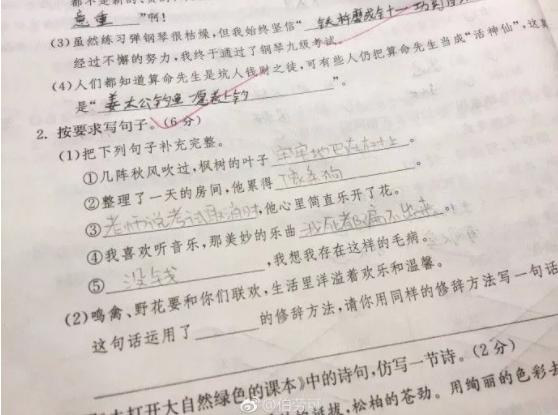 都不是新的
意重”啊!
(3)虽然练习弹钢琴很枯燥,但我始终坚信“铁杵磨成针——功到
经过不懈的努力,我终于通过了钢琴九级考试。
(4)人们都知道算命先生是坑人钱财之徒,可有些人仍把算命先生当成“活神仙”,这
是“姜太公钓鱼 愿者上钩”。
2. 按要求写句子。(6分)
(1)把下列句子补充完整。
①几阵秋风吹过,枫树的叶子牢牢地巴在树上。
②整理了一天的房间,他累得像条狗。
③老师说考试取消时,他心里简直乐开了花。
④我喜欢听音乐,那美妙的乐曲我死都写不出来。
⑤没钱,我想我存在这样的毛病。
(2)鸣禽、野花要和你们联欢,生活里洋溢着欢乐和温馨。
这句话运用了的修辞方法,请你用同样的修辞方法写一句话
打开大自然绿色的课本》中的诗句,仿写一节诗。(2分)
挺拔,松柏的苍劲。用绚丽的色彩去
@伯劳可